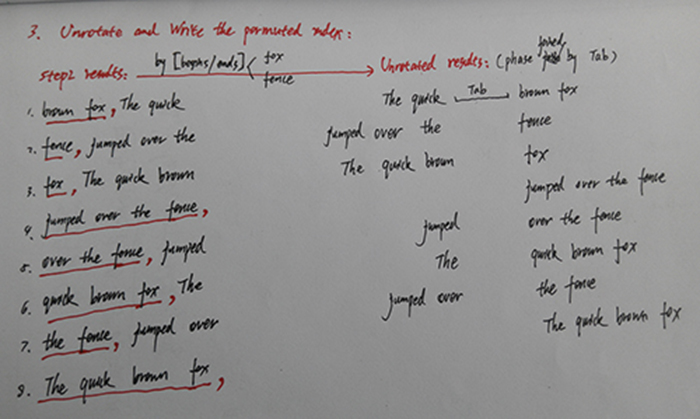 3. Unrotate and Write the permuted index:
step2 results: by [begins/ends] fox
fence
Unrotated results: (phase joined by Tab)
1. brown fox, The quick
2. fence, jumped over the
3. fox, The quick brown
4. jumped over the fence,
5. over the fence, jumped
6. quick brown fox, The
7. the fence, jumped over
8. The quick brown fox,
The quick Tab brown fox
jumped over the fence
The quick brown fox
jumped over the fence
jumped over the fence
The quick brown fox
jumped over the fence
The quick brown fox